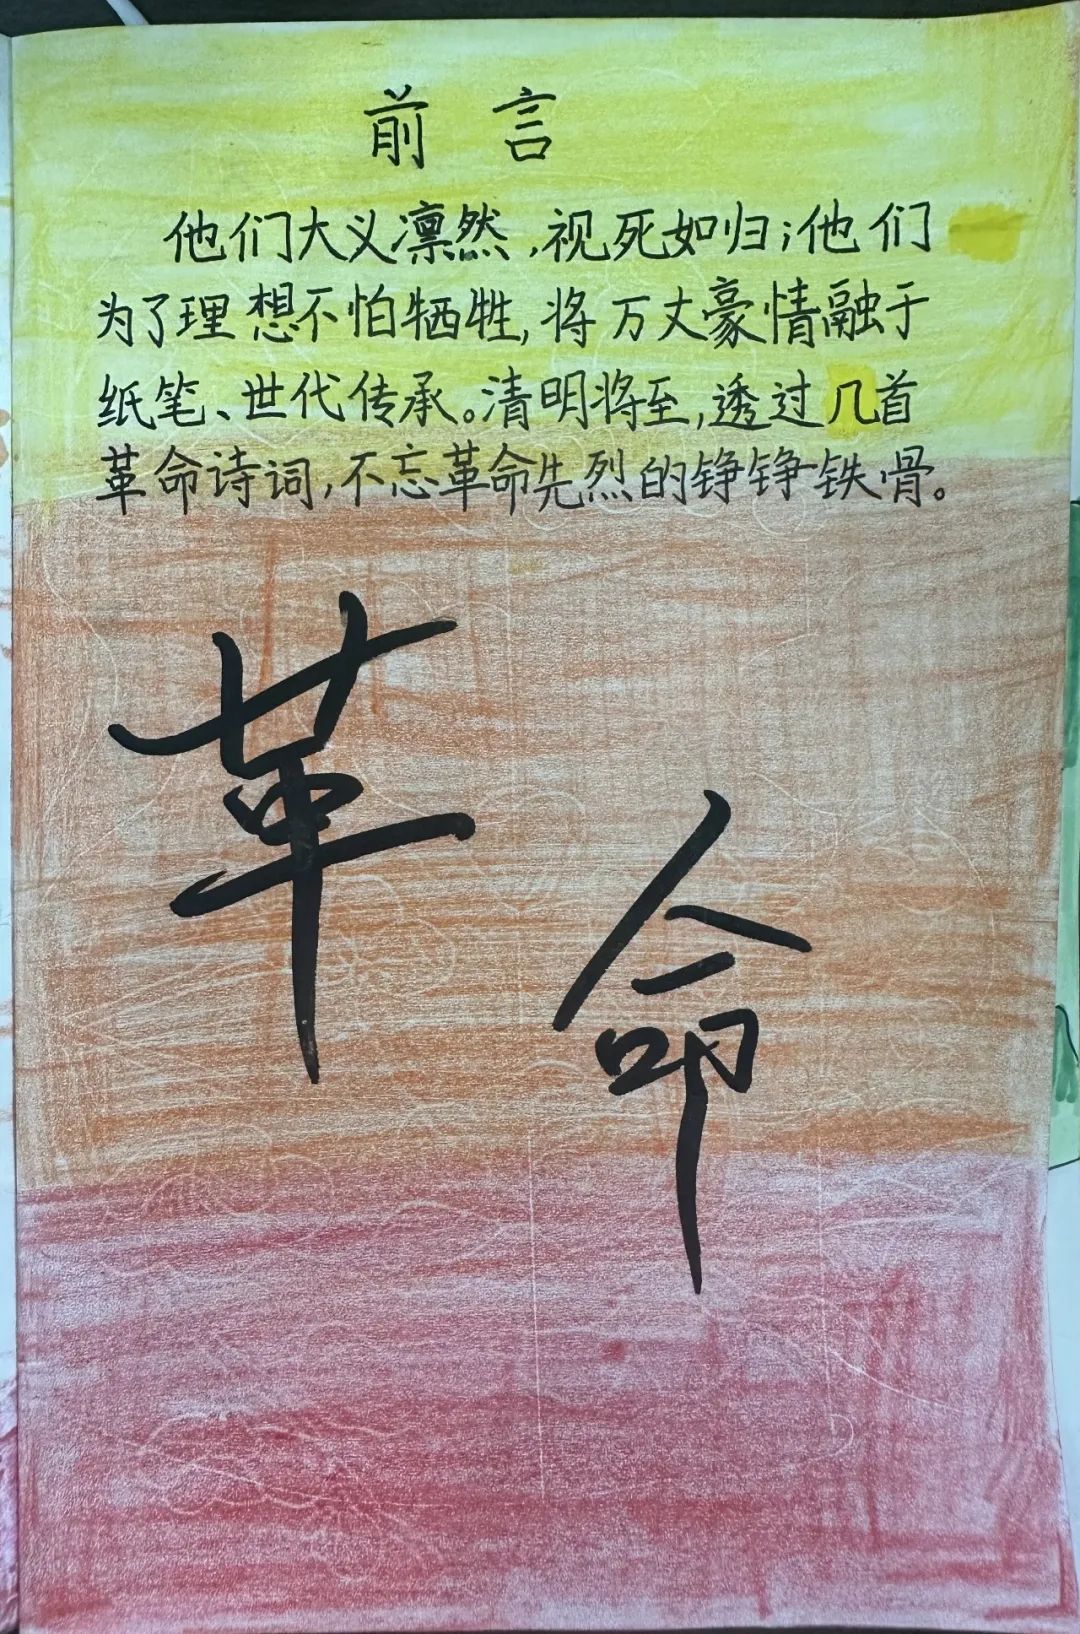 前言
他们大义凛然,视死如归;他们
为了理想不怕牺牲,将万丈豪情融于
纸笔、世代传承。清明将至,透过几首
革命诗词,不忘革命先烈的铮铮铁骨。
革
命